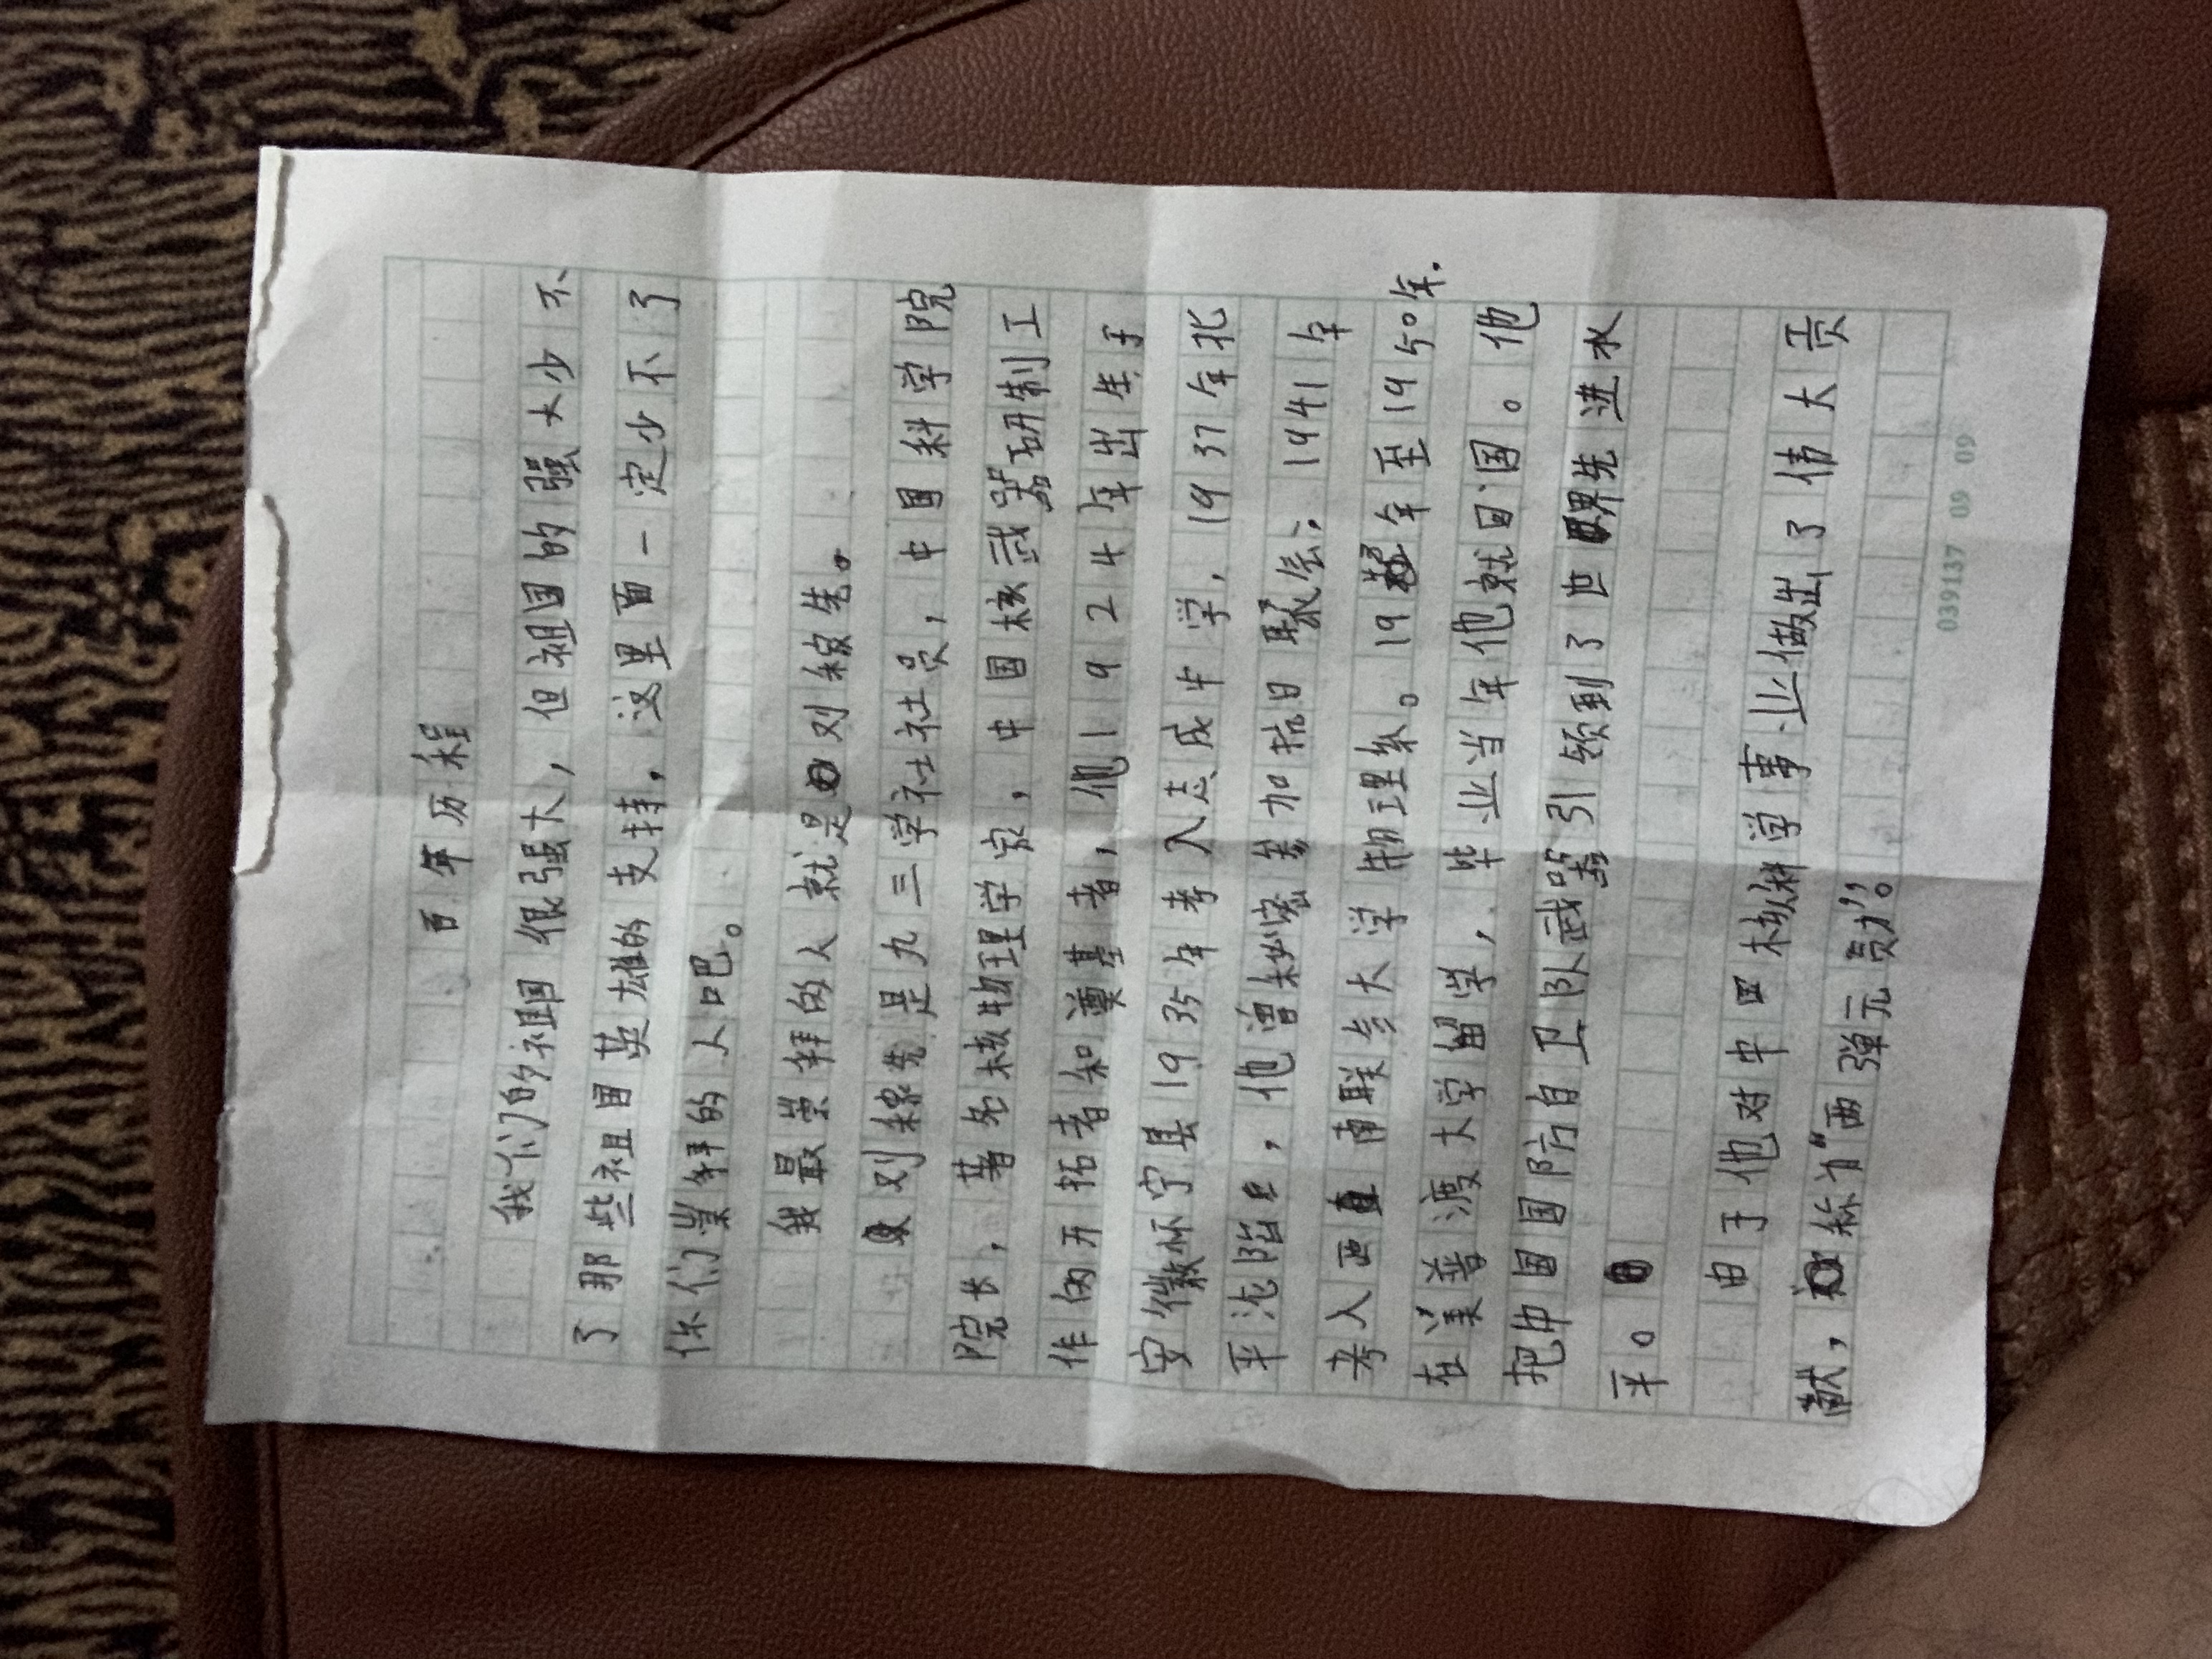 百年历程
我们的祖国很强大，但祖国的强大少不
了那些祖国英雄的支持，这里面一定少不了
你们崇拜的人吧。
我最崇拜的人就是刘稼先。
刘稼先是九三学社社员，中国科学院
院长，著名核物理学家，中国核武器研制工
作的开拓者和奠基者，他1924年出生于
安徽怀宁县1935年考入志成中学，1937年北
平沦陷，他曾秘密参加抗日聚会；1941年
考入西南联合大学物理系。19年至1950年.
在美普渡大学留学，毕业当年他就回国。他
把中国国防自卫队武器引领到了世界先进水
平。
由于他对中国核科学事业做出了伟大贡
献，称为"两弹元勋"。
039137 09 09